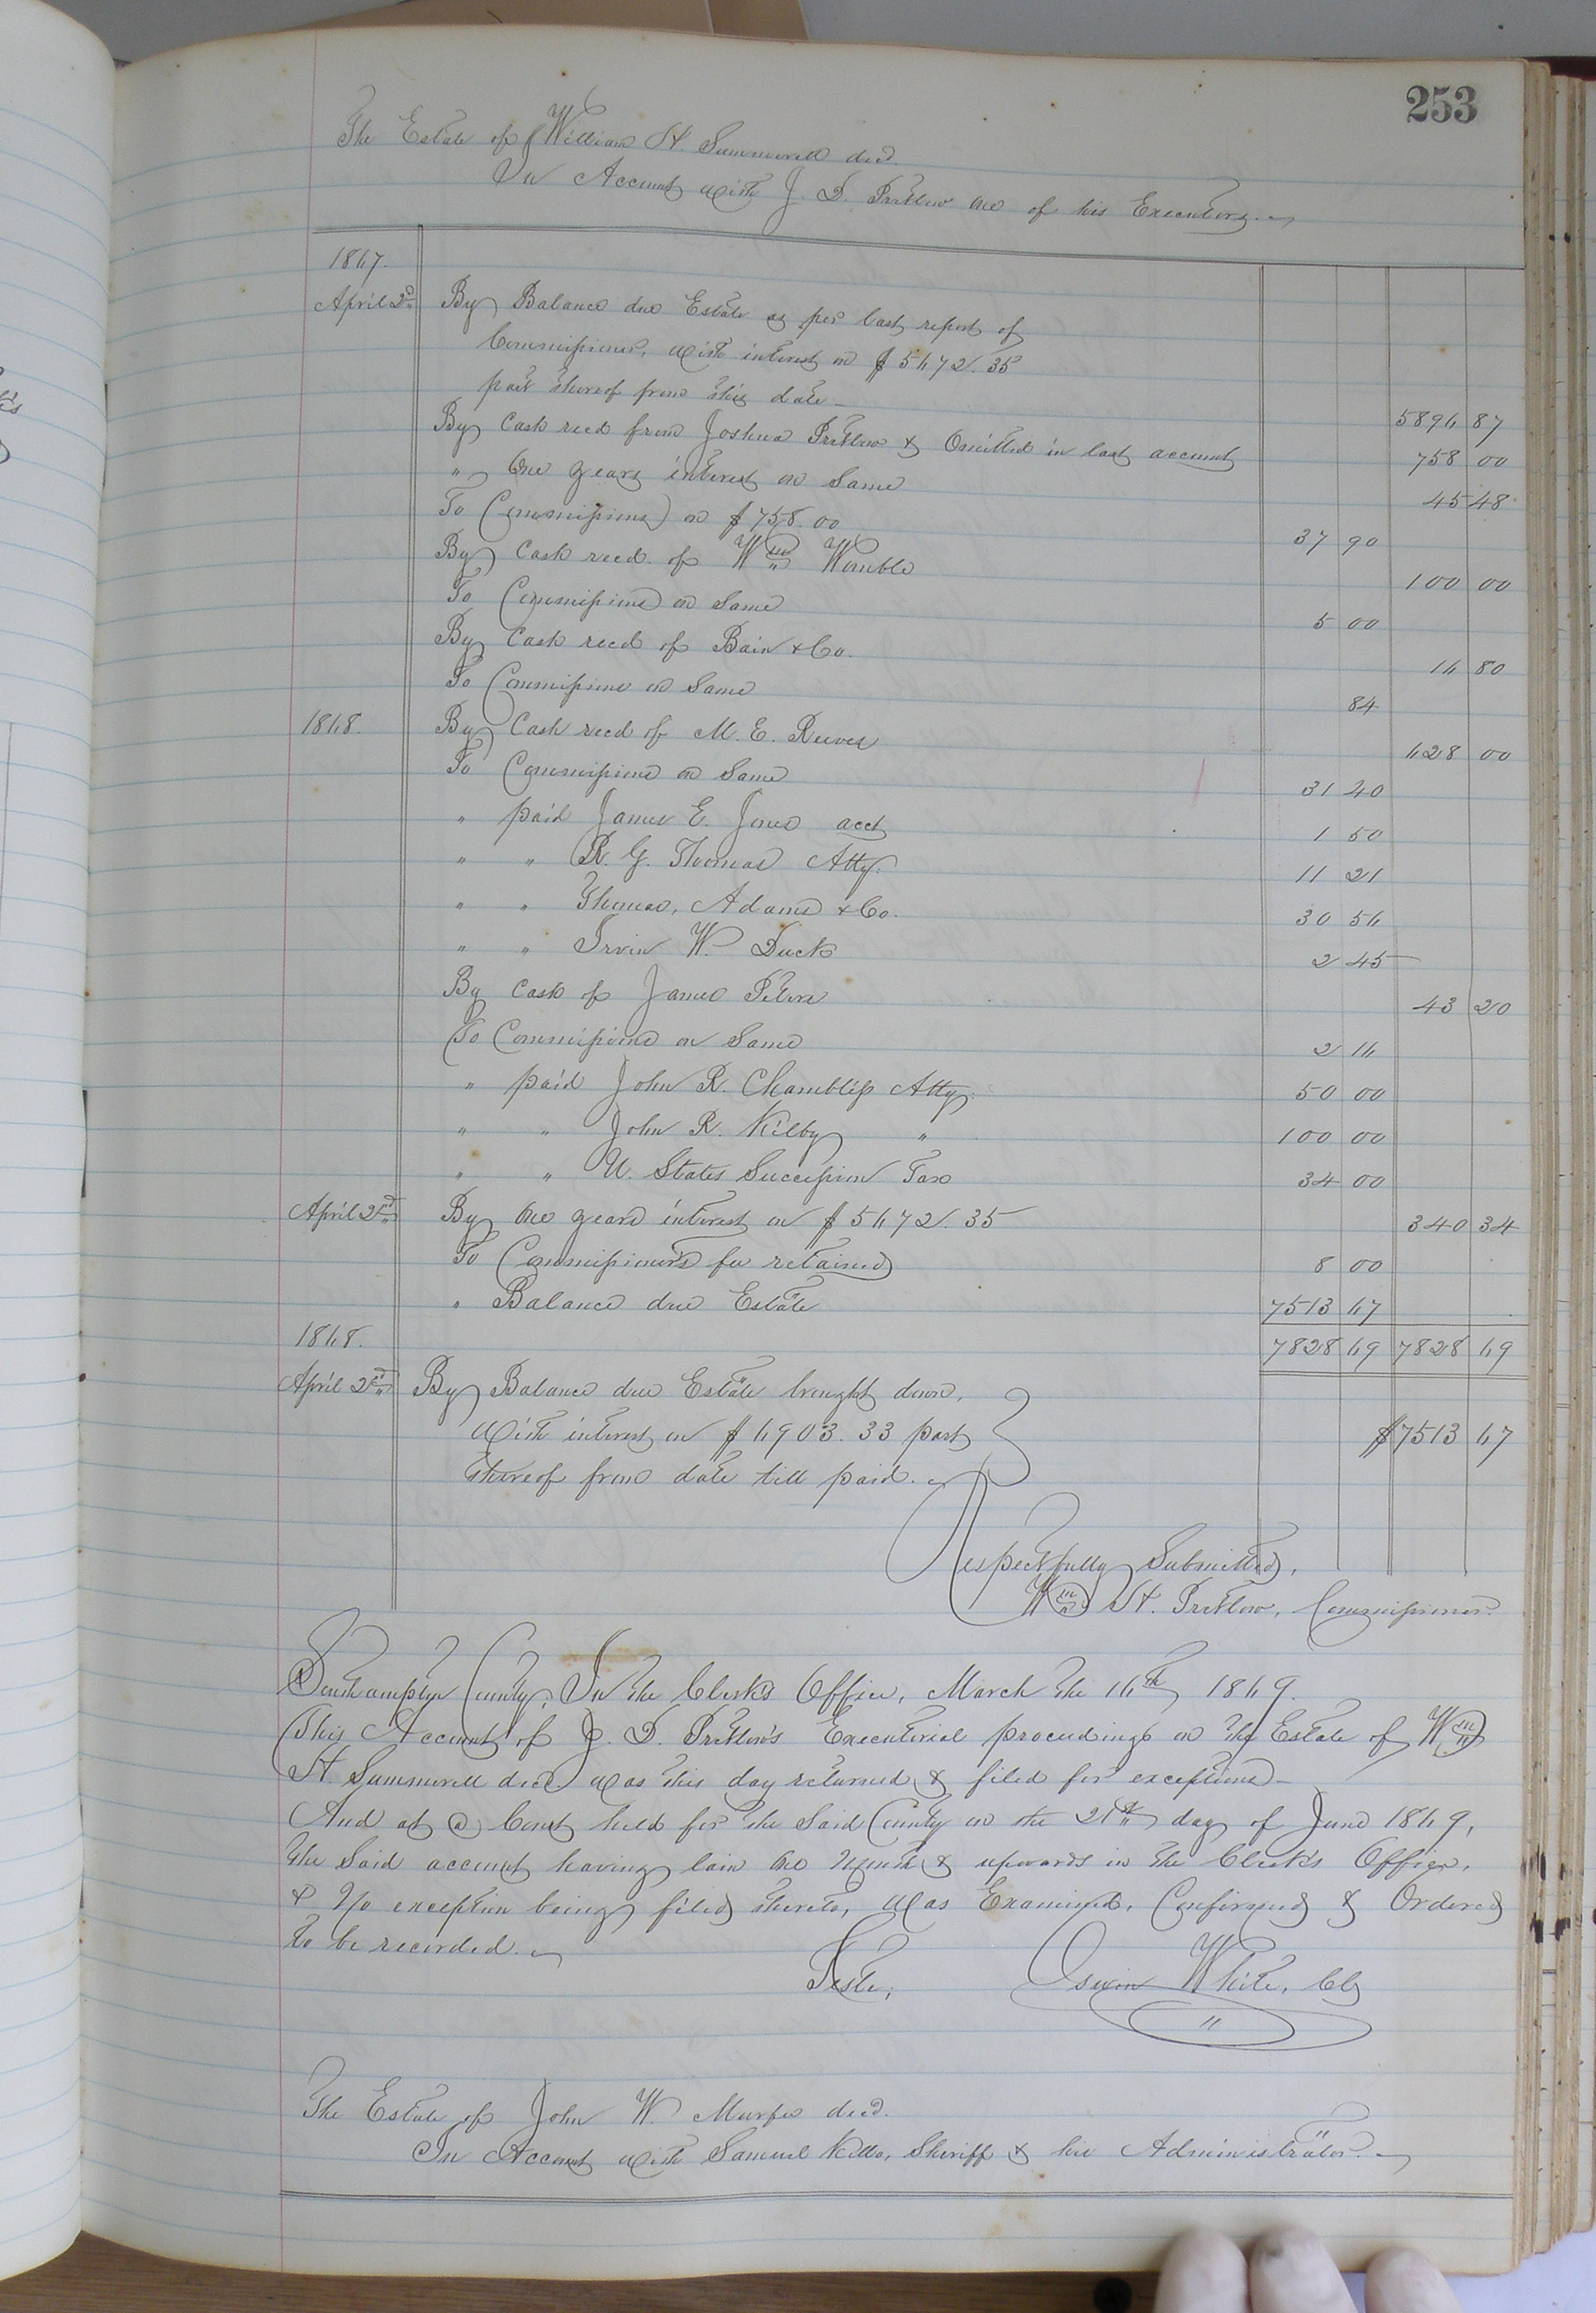 253
The Estate of William H. Summerell decd.
In Account with J. D. Pretlow one of his Executors.
1867.
April 2d By Balance due Estate as per last report of
Commissioner, with interest on $5672.35
part thereof from this date 5896 87
By Cash recd from Joshua Pretlow & Omitted in last account 758 00
" One years interest on Same 45 48
To Commissions on $758.00 37 90
By Cash recd. of Wm Womble 100 00
To Commissions on Same 5 00
By Cash recd of Bain & Co. 16 80
To Commissions on Same 84
1868. By Cash recd of M. E. Reeves 628 00
To Commissions on Same 31 40
" paid James E. Jones acct 1 50
" " R. G. Thomas Atty. 11 21
" " Thomas, Adams & Co. 30 56
" " Irvin W. Duck 2 45
By Cash of James Peters 43 20
To Commissions on Same 2 16
" paid John R. Chambliss Atty. 50 00
" " John R. Kilby " 100 00
" " U. States Succession Tax 34 00
April 2nd By one years interest on $5672.35 340 34
To Commissioner's fee retained 8 00
" Balance due Estate 7513 67
1868. 7828 69 7828 69
April 2nd By Balance due Estate brought down,
with interest on $6903.33 part $7513 67
thereof from date till paid.
Respectfully Submitted,
Wm H. Pretlow, Commissioner.
Southampton County, In the Clerk's Office, March the 16th, 1869.
This Account of J. D. Pretlow's Executorial proceedings on the Estate of Wm
H. Summerell decd was this day returned & filed for exceptions
And at a Court held for the Said County on the 21st day of June 1869,
The Said account having lain one Month & upwards in the Clerk's Office,
& No exception being filed thereto, was Examined, Confirmed & Ordered
to be recorded.
Teste, Oswin White, Clk
The Estate of John W. Murfee decd.
In Account with Samuel Kello, Sheriff & his Administrator.